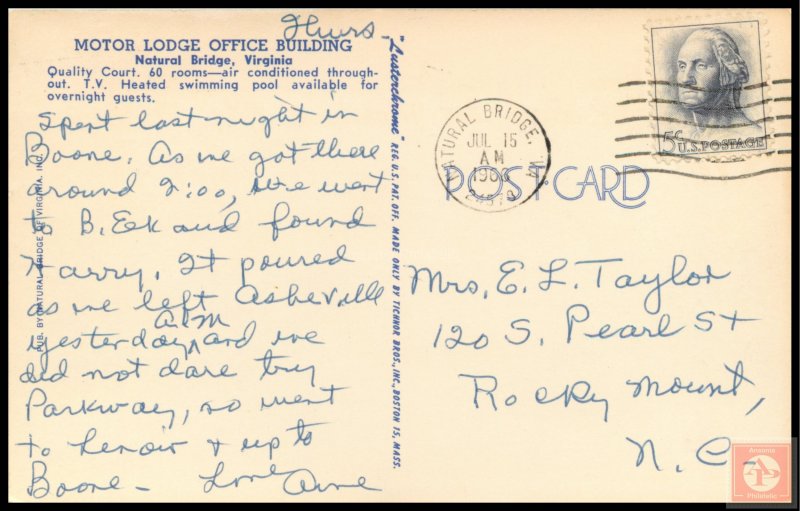 Thurs.
MOTOR LODGE OFFICE BUILDING
Natural Bridge, Virginia
Quality Court. 60 rooms—air conditioned through-
out. T.V. Heated swimming pool available for
overnight guests.
Spent last night in
Boone. As we got there
around 2:00, we went
to B. Elk and found
Harry. It poured
as we left Asheville
yesterday A.M and we
did not dare try
Parkway, so went
to Lenoir & up to
Boone - Love
PUB. BY NATURAL BRIDGE OF VIRGINIA, INC.
"Lusterchrome" REG. U.S. PAT. OFF. MADE ONLY BY TICHNOR BROS., INC., BOSTON 15, MASS.
NATURAL BRIDGE, VA
JUL 15
AM
5¢ U.S. POSTAGE
POST CARD
Mrs. E. L. Taylor
120 S. Pearl St
Rocky Mount,
N. C.
Ansons
Philatelic